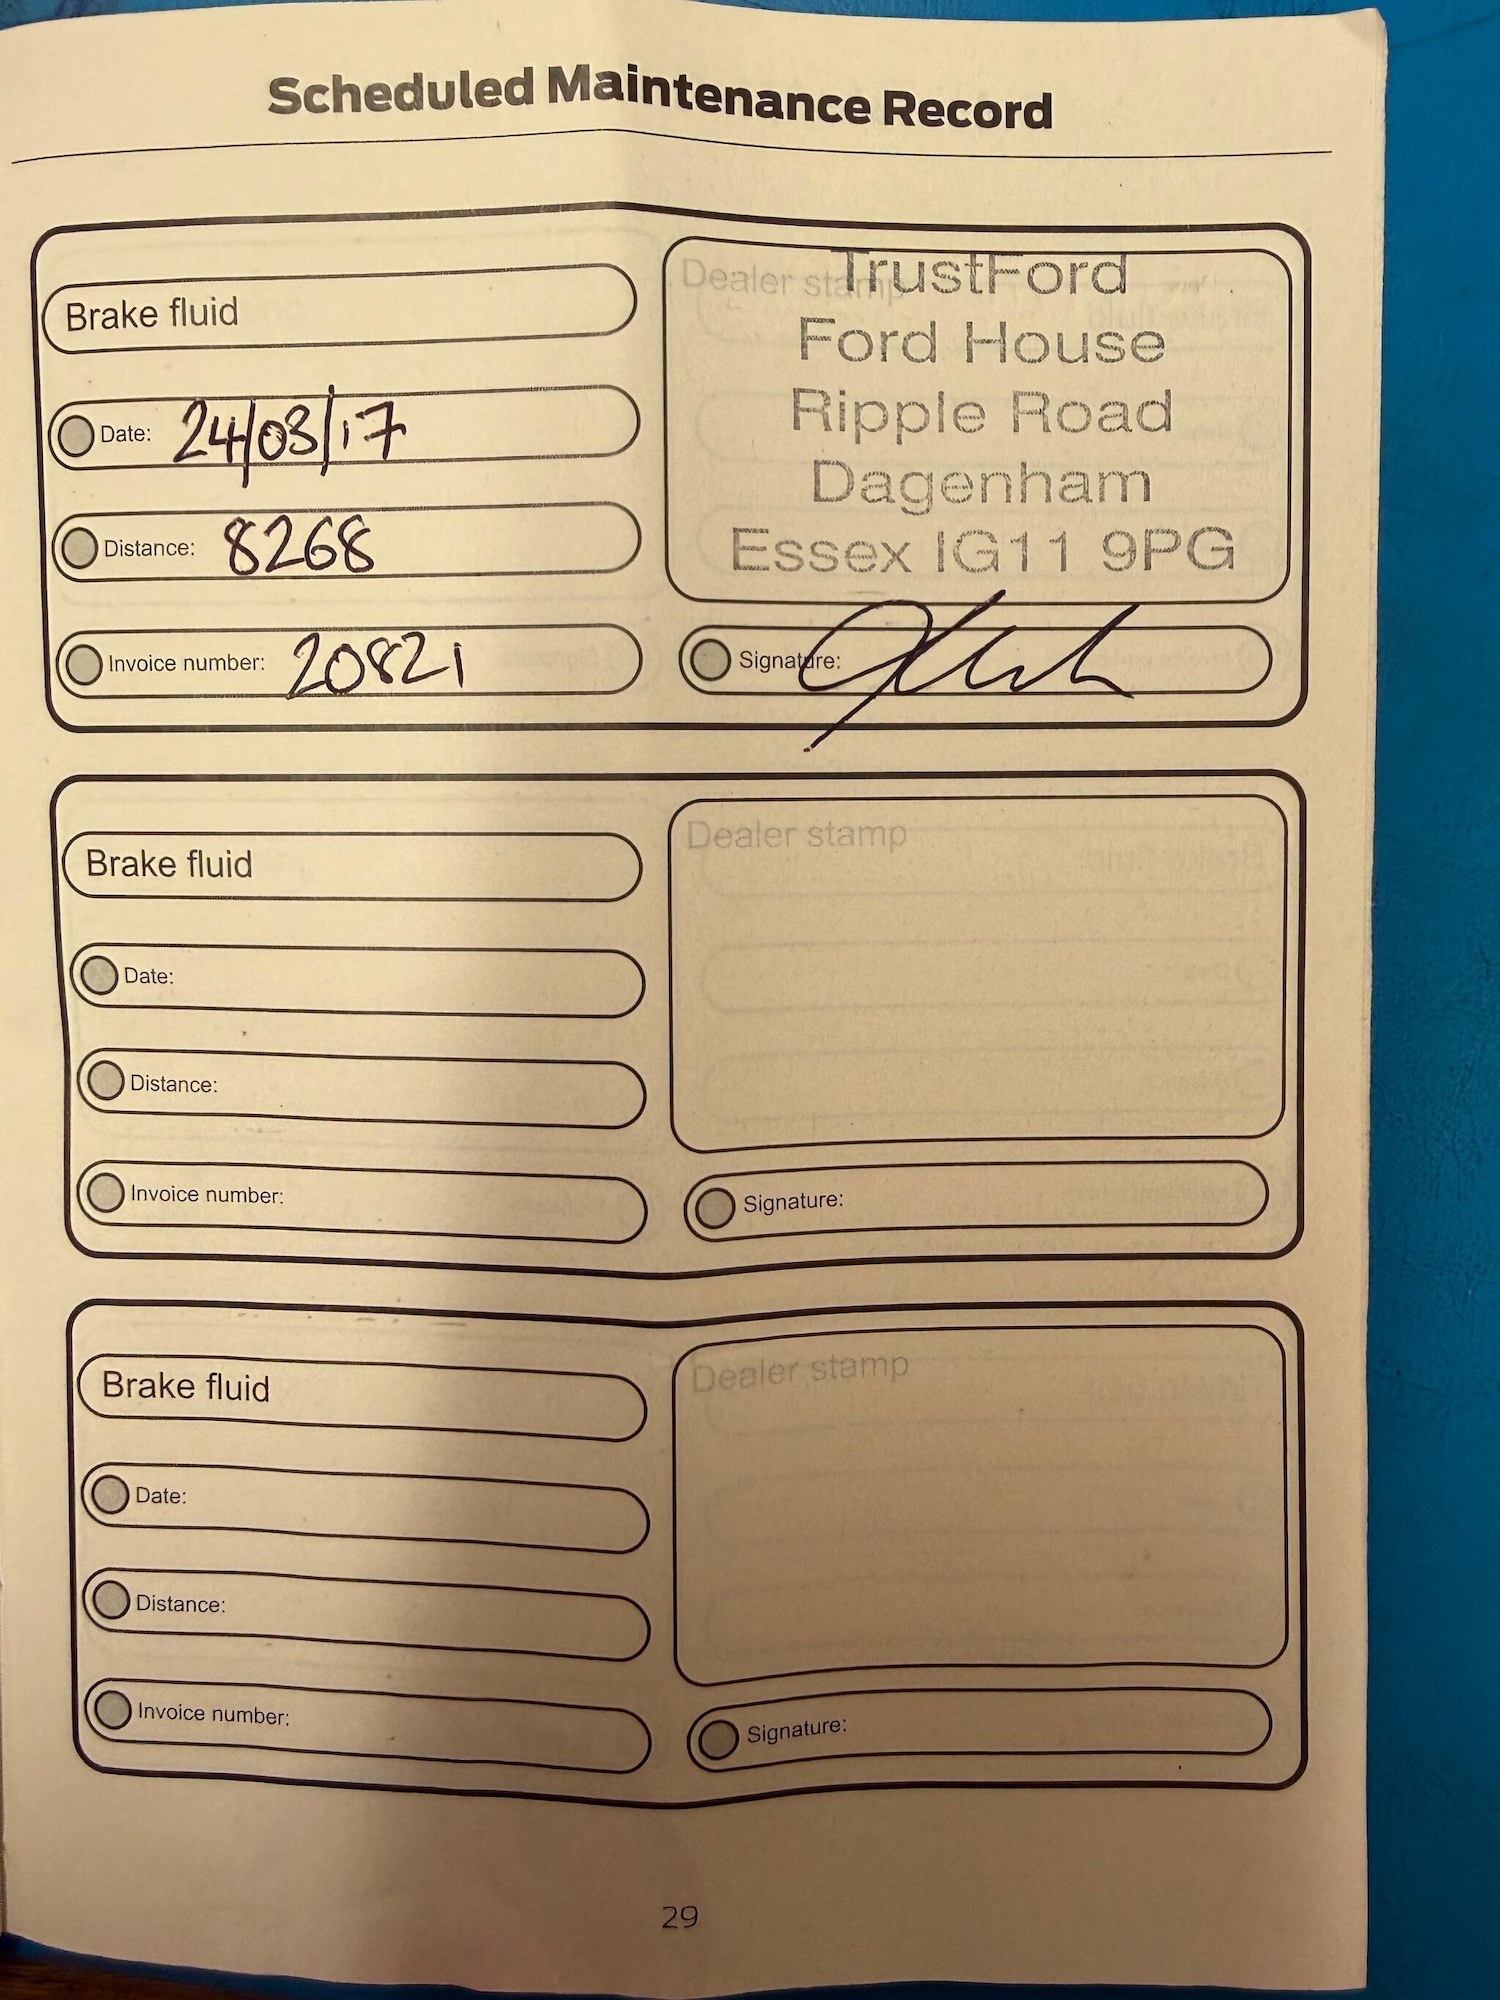 Scheduled Maintenance Record
Brake fluid
Date: 24/03/17
Distance: 8268
Invoice number: 20821
Dealer stamp
TrustFord
Ford House
Ripple Road
Dagenham
Essex IG11 9PG
Signature:
Brake fluid
Date:
Distance:
Invoice number:
Dealer stamp
Signature:
Brake fluid
Date:
Distance:
Invoice number:
Dealer stamp
Signature:
29